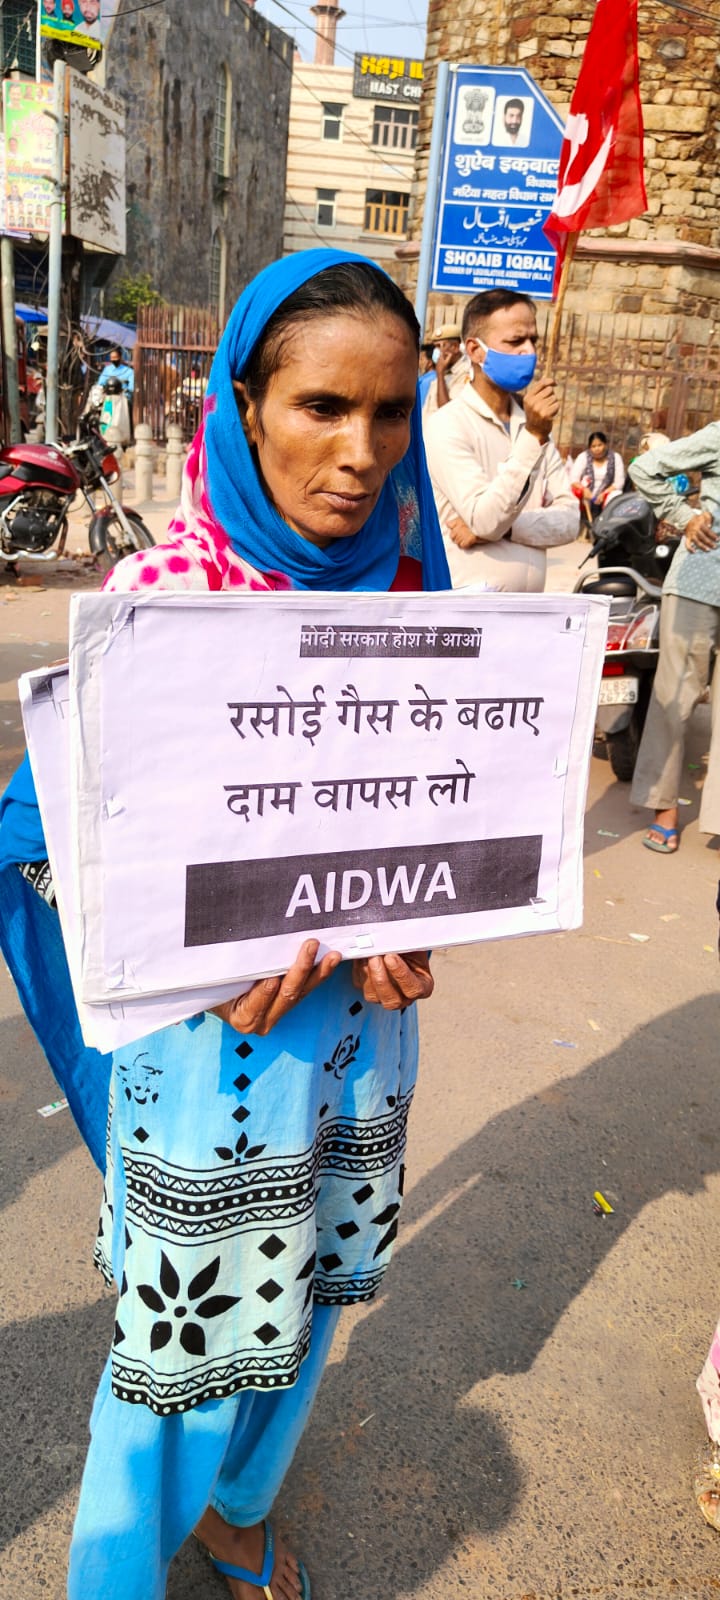 HAJI
MAST
शुऐब इक़बाल
विधायक
मटिया महल विधान सभा
شعیب اقبال
SHOAIB IQBAL
MEMBER OF LEGISLATIVE ASSEMBLY (M.L.A.)
MATIA MAHAL
मोदी सरकार होश में आओ
रसोई गैस के बढाए
दाम वापस लो
AIDWA